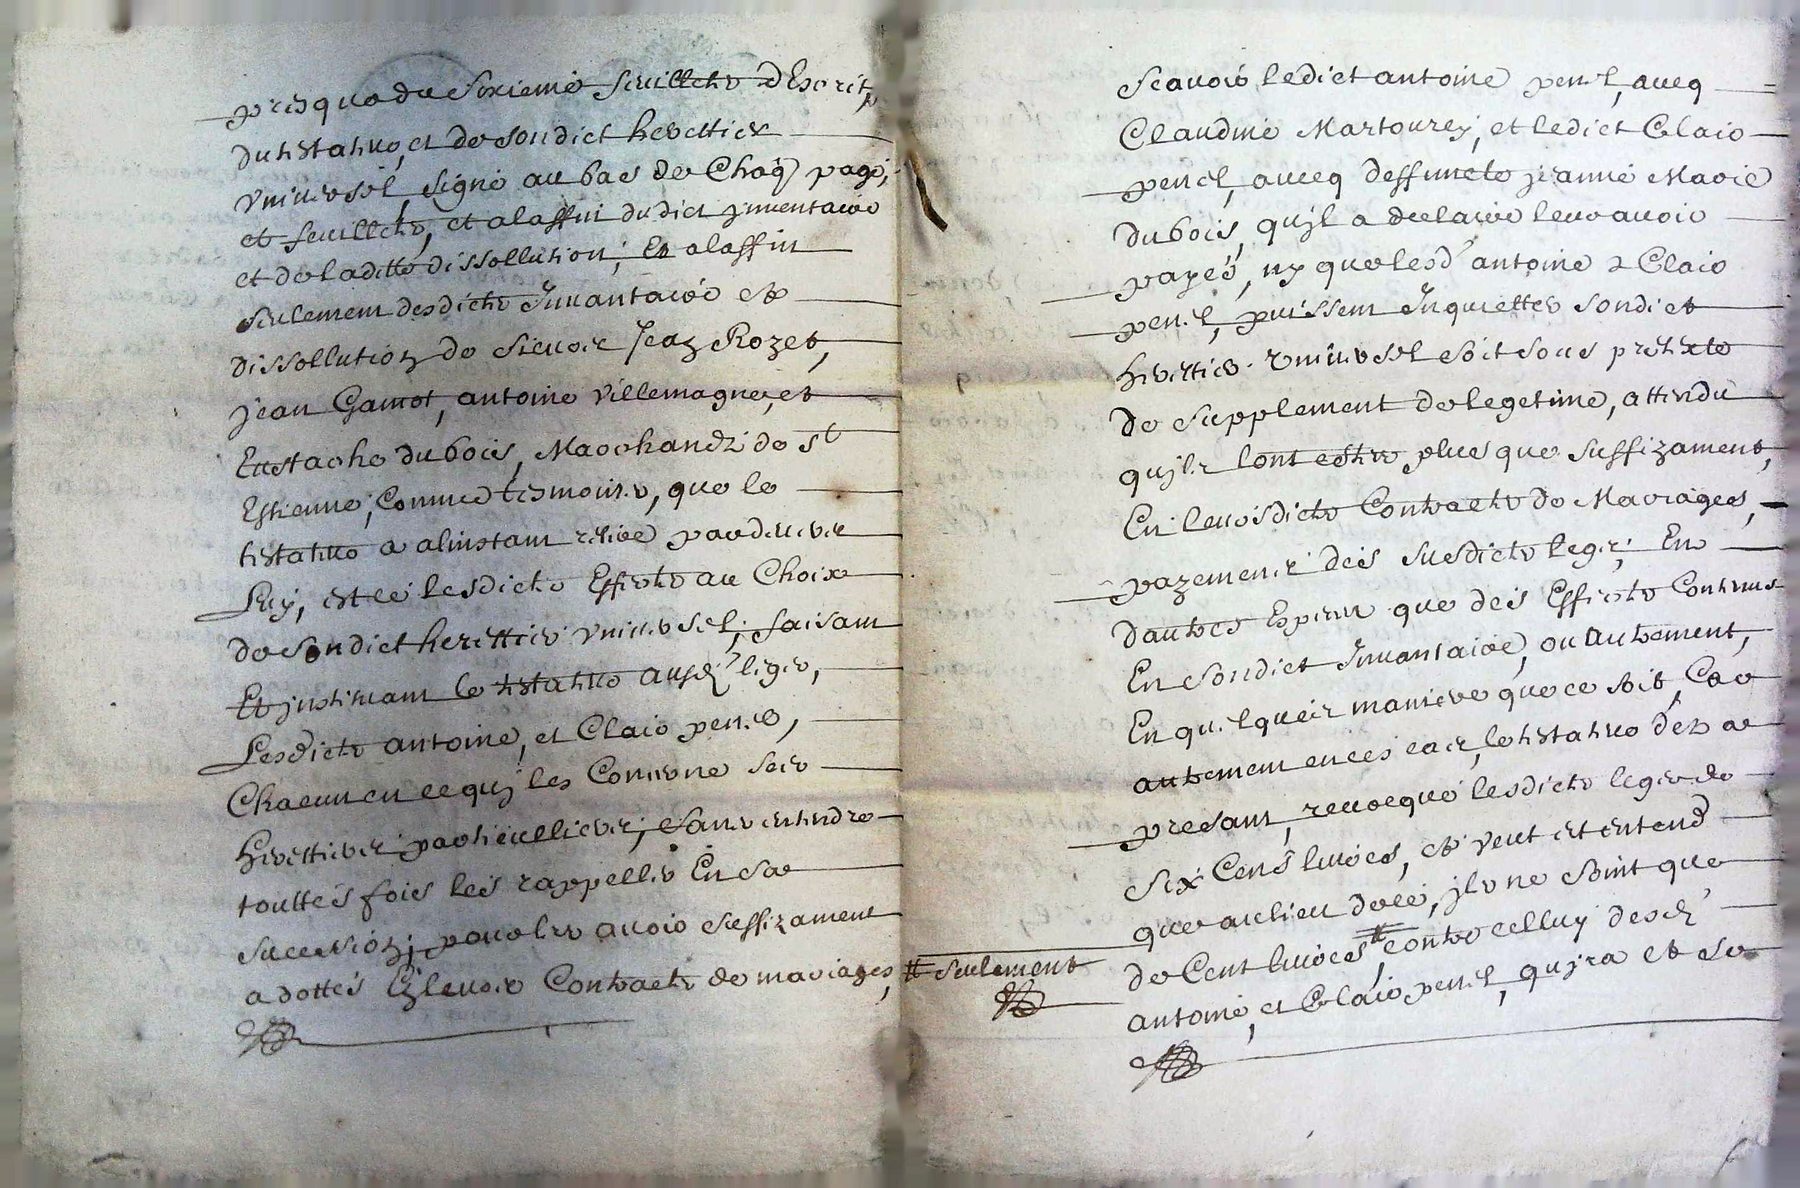 presque du sixieme feuillets d'Escript,
du testateur, et de sondict herettier
universel, signé au bas de Chaq) page,
et feuillets, et alaffin dudict Inventaire
et de laditte dissollution, Et alaffin
seulement desdicts Inventaire et
dissollution de sieurs Jean Rozet,
jean Gamot, antoine Villemagne, et
Eustache dubois, Marchandz de St
Estienne, Comme tesmoins, que le
testateur a alinstant retiré pardevers
Luy, et lesdicts Effects au Choix
de sondict herettier universel, faisant
Et instituant le testateur ausd' legs,
Lesdicts antoine, et Claio penel,
Chacun en ce quj les Concerne ses
herettiers particulliers, sans entendre
touttes fois les rappeller En sa
sucession, pour les avoir suffizament
adottés En leurs Contracts de mariages,
scavoir ledict antoine penel, avecq
Claudine Martourey, et ledict Claio
penel, avecq deffuncte jeanne Marie
dubois, qu'jl a declaire leur avoir
payés, ny que lesd' antoine & Claio
penel, puissent Inquietter sondict
herettier universel soit sous pretexte
de supplement de legetime, attendu
qu'jls lont estre plus que suffizament,
En leursdicts Contracts de Mariages,
payement des susdicts legs, En
dautres Espèces que des Effects Contenus
En sondict Invantaire, ou autrement,
En quelques maniere que ce soit, Car
autrement en ces cas, le testateur dez a
presant, revocque lesdicts legs de
six Cens livres, et veut et entend
que au lieu dicé, jls ne soint que
de Cent livres # contre celluy desd'
# seulement
antoine, et Claio penel, qu'jra et se